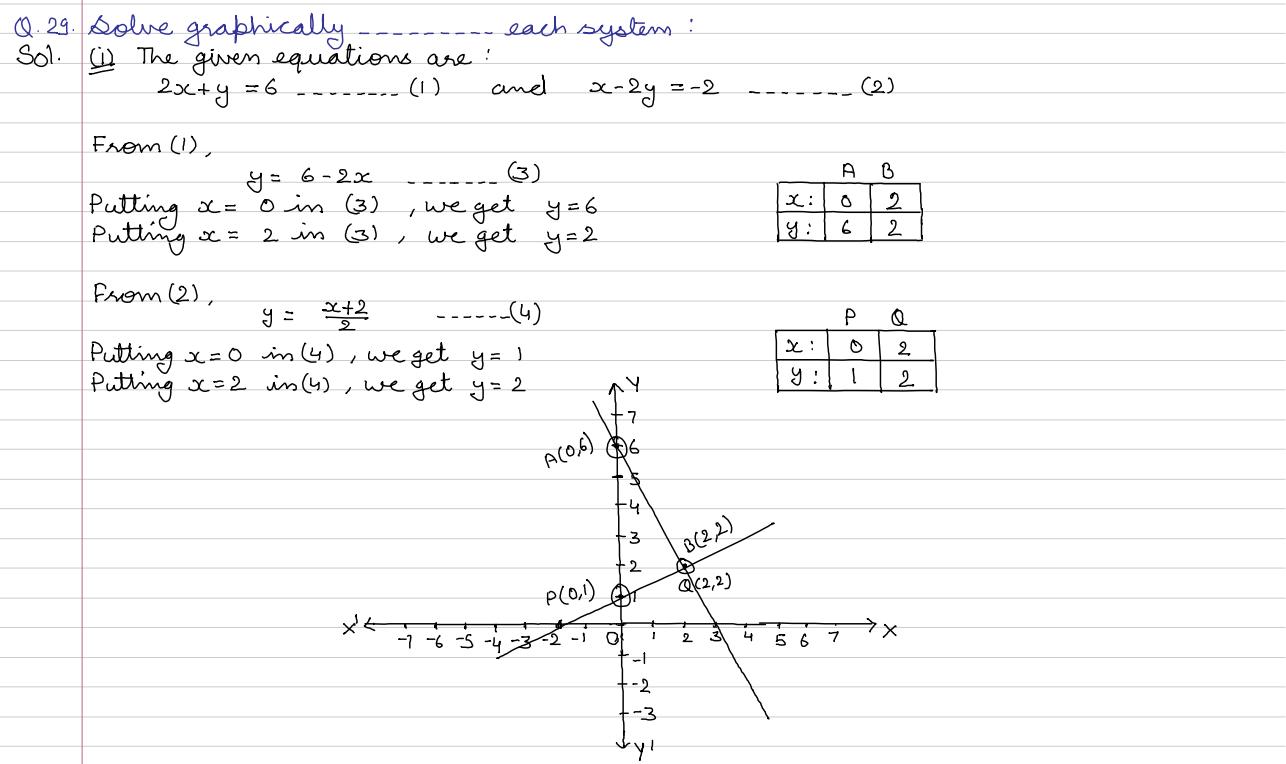 Q.29. Solve graphically --------- each system :
Sol. (i) The given equations are :
2x+y = 6 --------- (1) and x-2y = -2 ------- (2)
From (1),
y = 6-2x ------- (3)
A B
Putting x = 0 in (3) , we get y=6
x: 0 2
Putting x = 2 in (3) , we get y=2
y: 6 2
From (2),
y = x+2/2 ------(4)
P Q
Putting x=0 in (4) , we get y= 1
x: 0 2
Putting x=2 in (4) , we get y= 2
y: 1 2
Y
7
A(0,6) 6
5
4
3
B(2,2)
2
Q(2,2)
P(0,1) 1
X' -7 -6 -5 -4 -3 -2 -1 0 1 2 3 4 5 6 7 X
-1
-2
-3
Y'